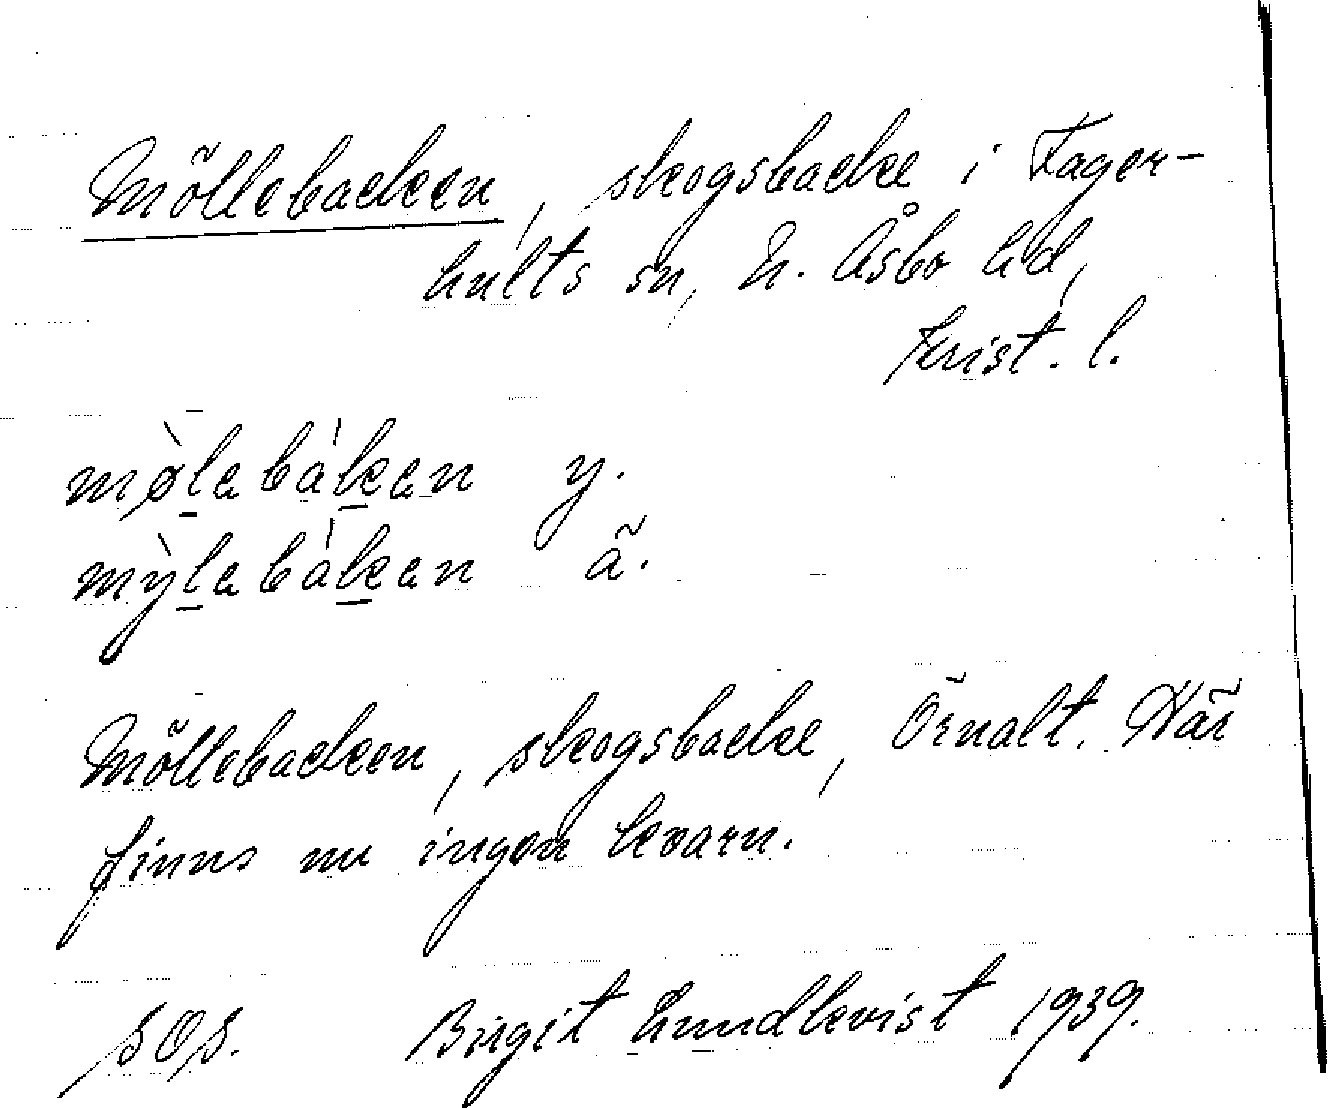 Möllebacken, skogsbacke i Fager-
hults sn, N. Åsbo hd,
Krist. l.
mø̀lebàken y.
mỳlebàken ä.
Möllebacken, skogsbacke, Örnalt. Här
finns nu ingen kvarn.
SOS. Birgit Lundkvist 1939.